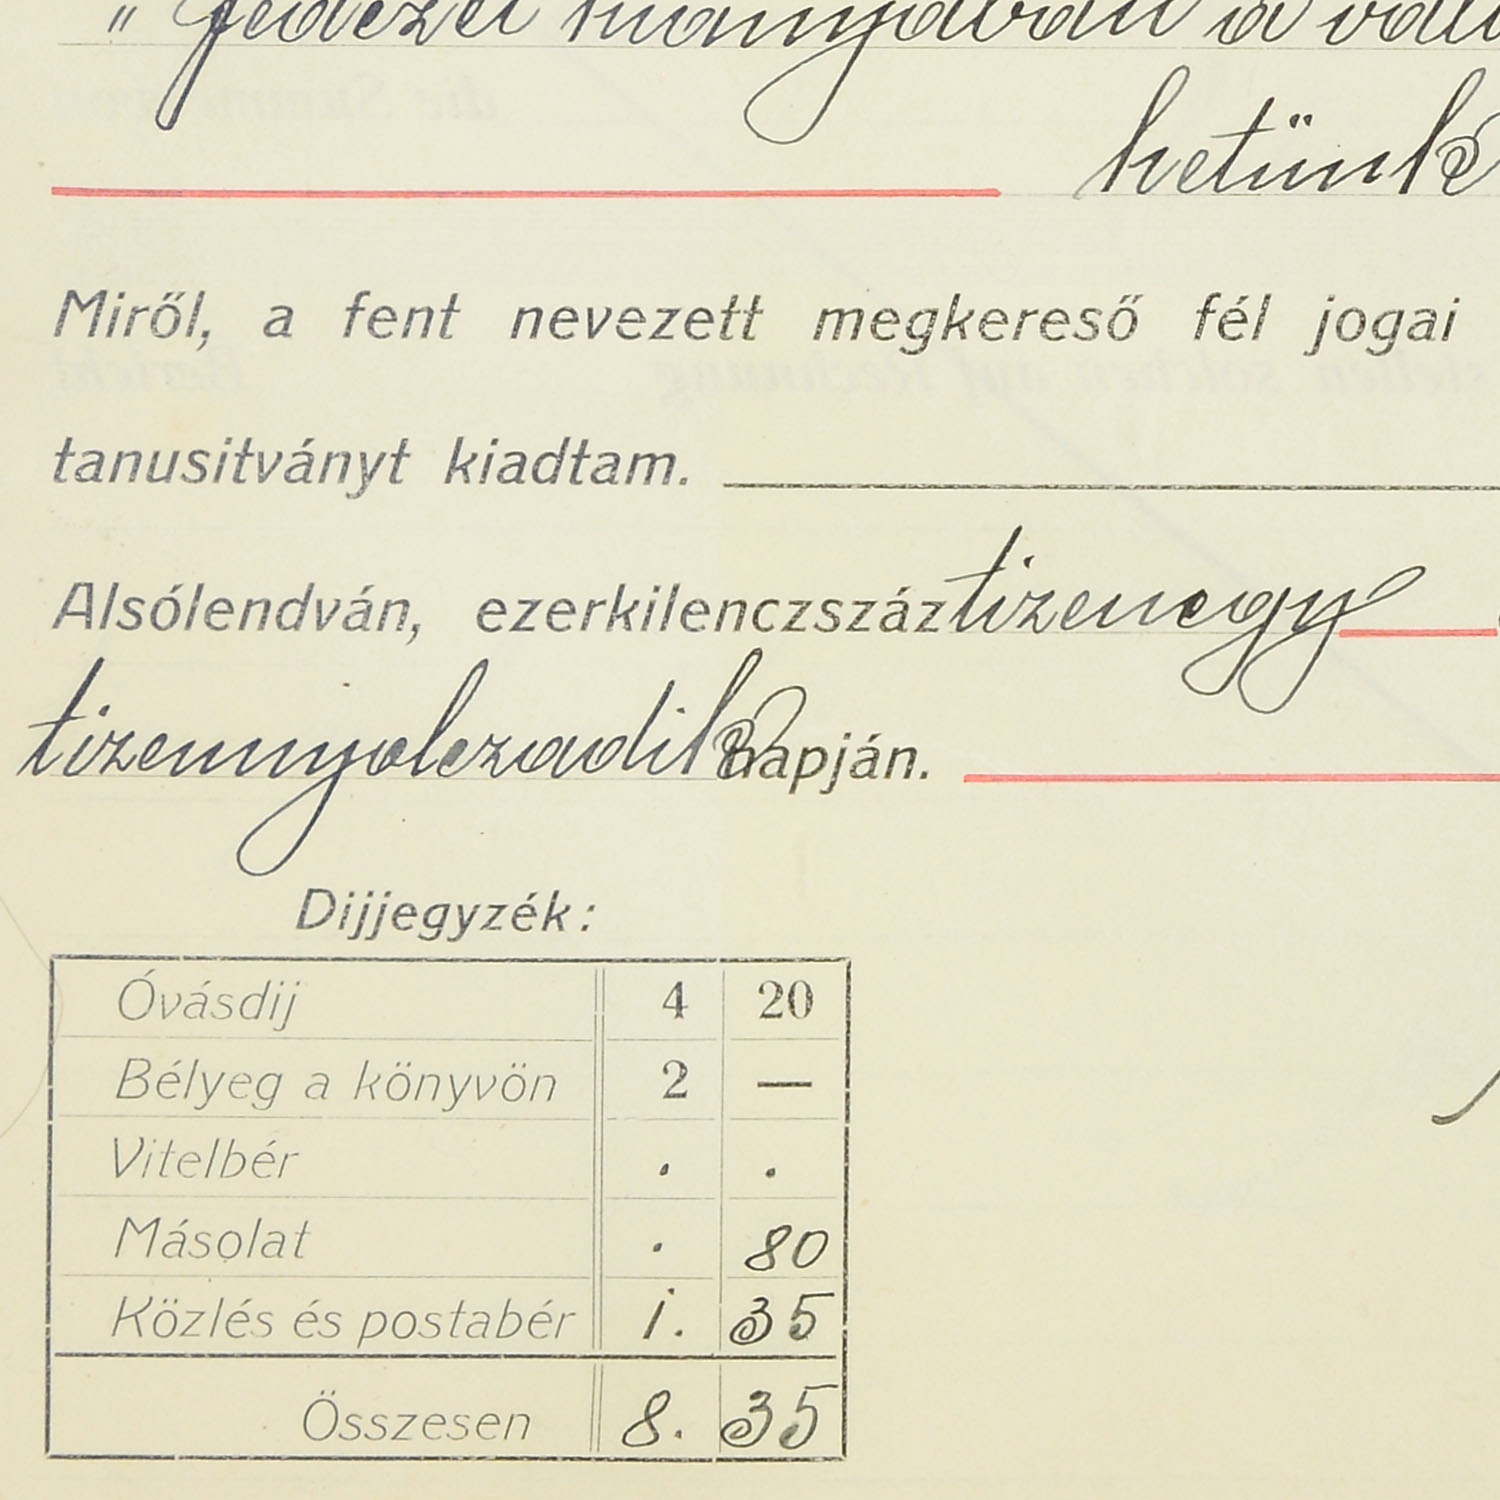 „ fedezet hiányában a
hetünk
Miről, a fent nevezett megkereső fél jogai
tanusitványt kiadtam.
Alsólendván, ezerkilenczszáztizenegy
tizennyolczadik napján.
Dijjegyzék:
Óvásdij 4 20
Bélyeg a könyvön 2 —
Vitelbér . .
Másolat . 80
Közlés és postabér 1. 35
Összesen 8. 35